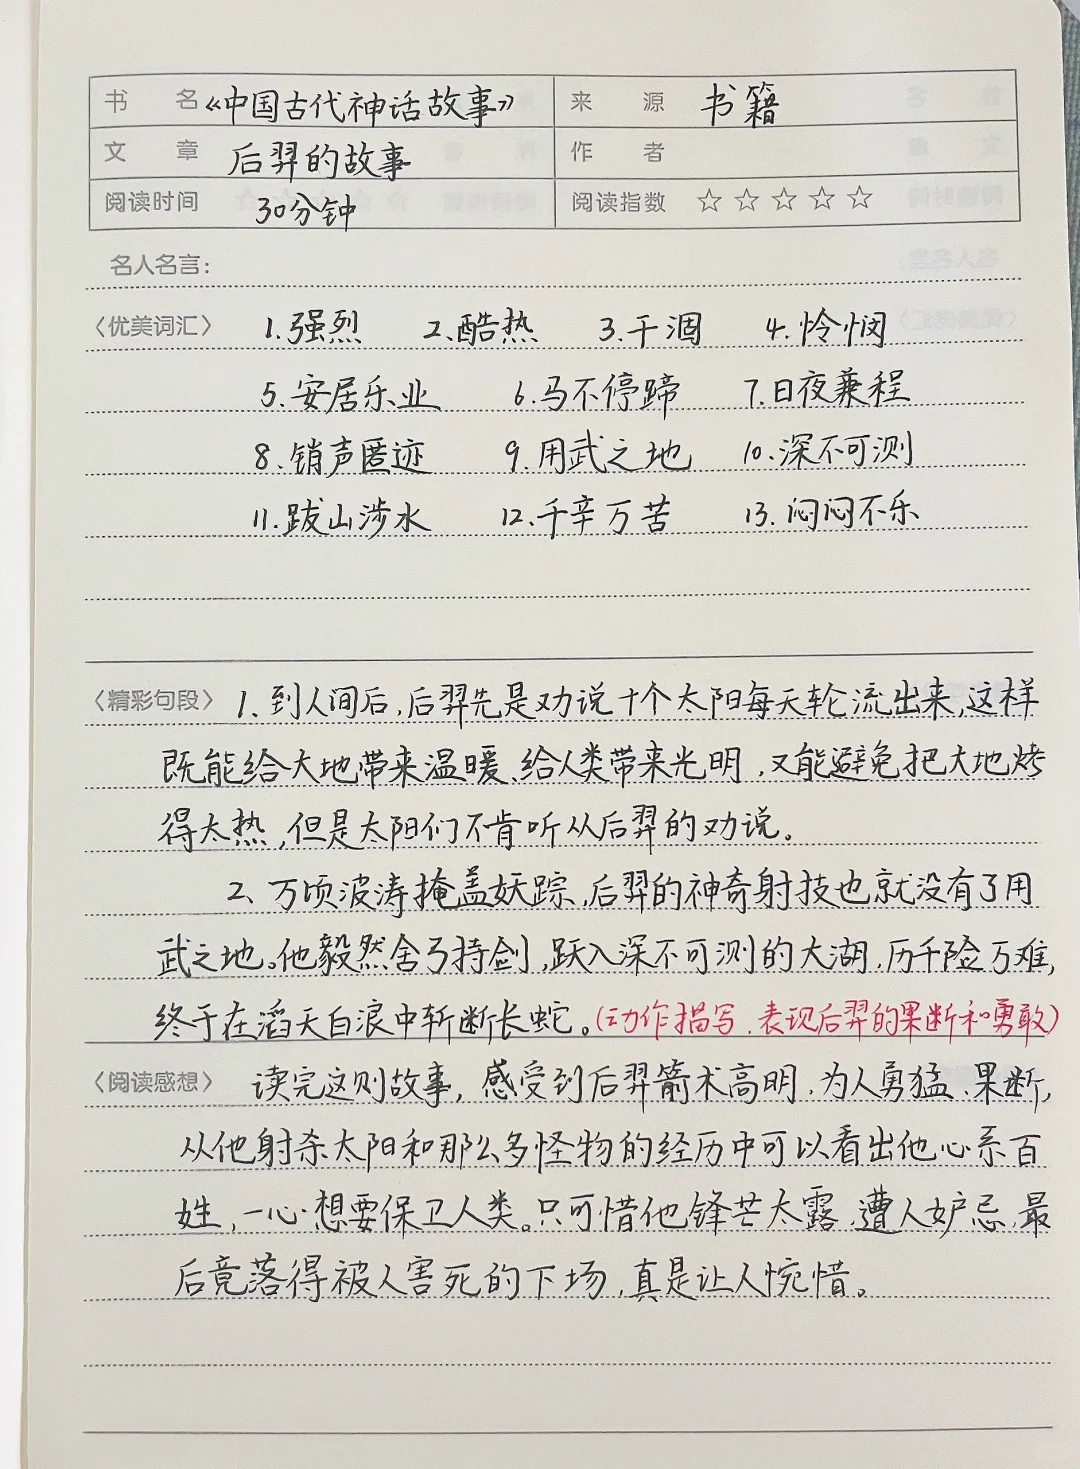 书 名 《中国古代神话故事》 来 源 书籍
文 章 后羿的故事 作 者
阅读时间 30分钟 阅读指数 ☆☆☆☆☆
名人名言：
〈优美词汇〉 1.强烈 2.酷热 3.干涸 4.怜悯
5.安居乐业 6.马不停蹄 7.日夜兼程
8.销声匿迹 9.用武之地 10.深不可测
11.跋山涉水 12.千辛万苦 13.闷闷不乐
〈精彩句段〉 1、到人间后,后羿先是劝说十个太阳每天轮流出来,这样
既能给大地带来温暖、给人类带来光明,又能避免把大地烤
得太热,但是太阳们不肯听从后羿的劝说。
2、万顷波涛掩盖妖踪,后羿的神奇射技也就没有了用
武之地。他毅然舍弓持剑,跃入深不可测的大湖,历千险万难,
终于在滔天白浪中斩断长蛇。(动作描写,表现后羿的果断和勇敢)
〈阅读感想〉 读完这则故事,感受到后羿箭术高明,为人勇猛、果断,
从他射杀太阳和那么多怪物的经历中可以看出他心系百
姓,一心想要保卫人类。只可惜他锋芒太露,遭人妒忌,最
后竟落得被人害死的下场,真是让人惋惜。